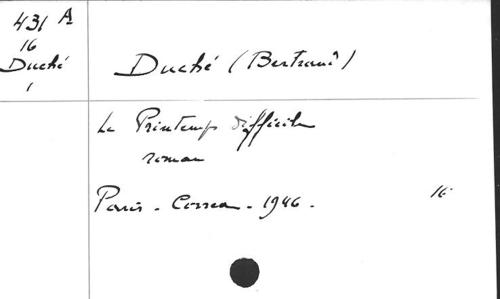 431 A
16
Duché
1
Duché (Bertrand)
Le Printemps difficile
roman
Paris - Correa - 1946 -
16